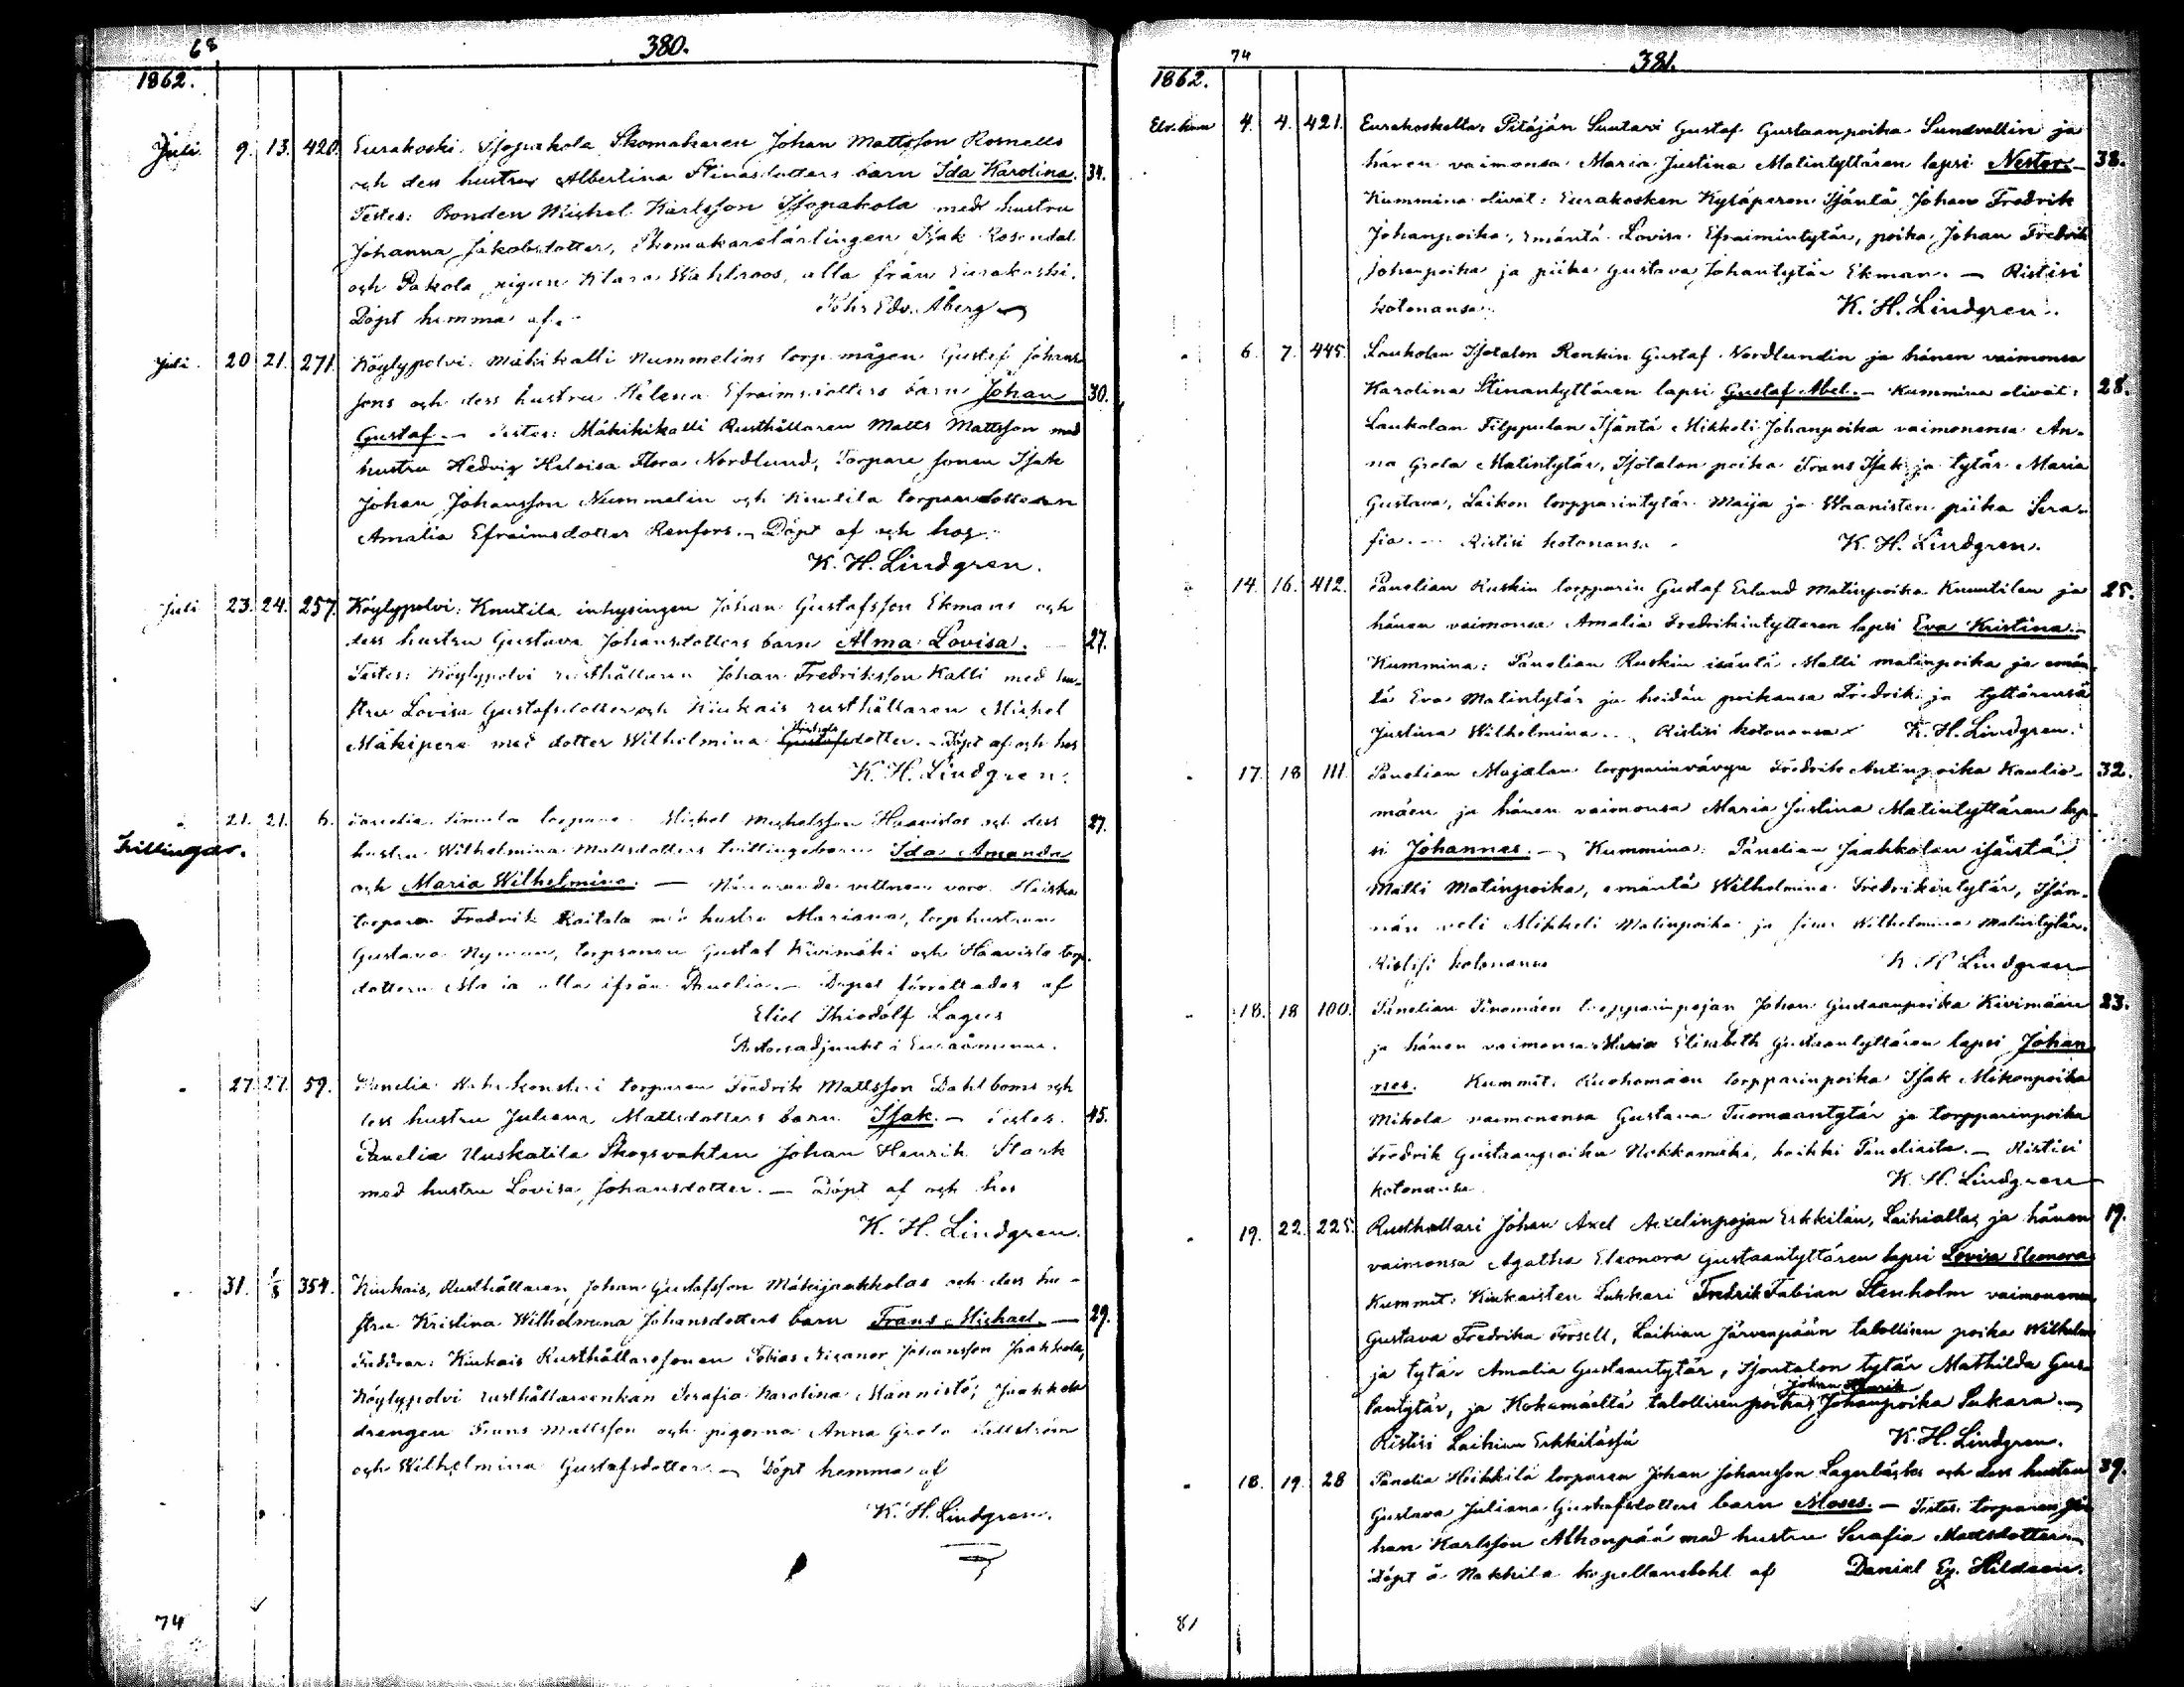 68
380.
1862.
Juli 9. 13. 420. Eurakoski. Isopakola Skomakaren Johan Mattsson Rosnells
och dess hustru Albertina Stinasdotters barn Ida Karolina. 34.
Testes: Bonden Michel Karlsson Isopakola med hustru
Johanna Jakobsdotter, Skomakarelärlingen Isak Rosendal
och Pakola pigan Klara Wahlroos, alla från Eurakoski.
Döpt hemma af. Joh: Edv. Åberg
Juli. 20 21. 271. Köylypolvi: Mäkikalli Nummelins torp mågen Gustaf Johans-
sons och dess hustru Helena Efraimsdotters barn Johan 30.
Gustaf. — Testes: Mäkikalli Rusthållaren Matts Mattsson med
hustru Hedvig Heloisa Flora Nordlund, Torpare sonen Isak
Johan Johansson Nummelin och Knutila torparedottern
Amalia Efraimsdotter Renfors. — Döpt af och hos
K. H. Lindgren.
Juli 23. 24. 257. Köylypolvi: Knutila inhysingen Johan Gustafsson Ekmans och
dess hustru Gustava Johansdotters barn Alma Lovisa. 27.
Testes: Köylypolvi rusthållaren Johan Fredriksson Kalli med hu-
stru Lovisa Gustafsdotter och Kiukais rusthållaren Michel
Mäkiperä med dotter Wilhelmina Gustafsdotter. — Döpt af och hos
K. H. Lindgren.
21. 21. 6. Panelia Simula torpare Michel Michelsson Haavistos och dess 27.
Tvillingar. hustru Wilhelmina Mattsdotters tvillingebarn Ida Amanda
och Maria Wilhelmina. — Närvarande vittnen voro Heiska
torparen Fredrik Kaitala med hustru Mariana, torphustrun
Gustava Nyman, torpsonen Gustaf Kivimäki och Haavisto torp-
dottern Maria alla ifrån Panelia. — Dopet förrättades af
Eliel Thiodolf Lagus
Pastorsadjunkt i Euraåminne.
27. 27. 59. Panelia torparen Fredrik Mattsson Dahlboms och
dess hustru Juliana Mattsdotters barn Isak. — Testes. 45.
Panelia Uuskatila Skogsvakten Johan Henrik Stark
med hustru Lovisa Johansdotter. — Döpt af och hos
K. H. Lindgren.
31. 1/8 354. Kiukais, Rusthållaren Johan Gustafsson Mäkijaakkolas och dess hu-
stru Kristina Wilhelmina Johansdotters barn Frans Michael. — 29.
Faddrar: Kiukais Rusthållaresonen Tobias Nicanor Johansson Jaakkola,
Köylypolvi rusthållareenkan Serafia Karolina Männistö; Jaakkola
drengen Frans Mattsson och pigorna Anna Greta Fältström
och Wilhelmina Gustafsdotter. — Döpt hemma af
K. H. Lindgren.
74
74
381.
1862.
4. 4. 421. Eurakoskelta: Pitäjän Suutari Gustaf Gustaanpoika Sundvallin ja
hänen vaimonsa Maria Justina Matintyttären lapsi Nestor. — 38.
Kummina olivat: Eurakosken Kyläperen Isäntä Johan Fredrik
Johanpoika, emäntä Lovisa Efraimintytär, poika Johan Fredrik
Johanpoika ja piika Gustava Johantytär Ekman. — Ristisi
kotonansa. K. H. Lindgren.
6. 7. 445. Laukolan Isotalon Renkin Gustaf Nordlundin ja hänen vaimonsa
Karolina Stinantyttären lapsi Gustaf Abel. — Kummina olivat: 28.
Laukolan Filppulan Isäntä Mikkeli Johanpoika vaimonensa An-
na Greta Matintytär, Isotalon poika Frans Isak ja tytär Maria
Gustava, Laikon torpparintytär Maija ja Waanisten piika Sera-
fia. — Ristisi kotonansa K. H. Lindgren.
14. 16. 412. Panelian Ruskin torpparin Gustaf Erland Matinpoika Knuutilan ja 25.
hänen vaimonsa Amalia Fredrikintyttären lapsi Eva Kristina. —
Kummina: Panelian Ruskin isäntä Matti matinpoika ja emän-
tä Eva Matintytär ja heidän poikansa Fredrik ja tyttärensä
Justina Wilhelmina. Ristisi kotonansa K. H. Lindgren.
17. 18 111. Panelian Majalan torpparinvävyn Fredrik Antinpoika Kaulio- 32.
mäen ja hänen vaimonsa Maria Justina Matintyttären lap-
si Johannes. — Kummina: Panelian Jaakkolan isäntä
Matti Matinpoika, emäntä Wilhelmina Fredrikintytär, Isän-
nän veli Mikkeli Matinpoika ja Wilhelmina Matintytär.
Ristisi kotonansa K. H. Lindgren
18. 18 100. Panelian torpparinpojan Johan Gustaanpoika Kivimäen 23.
ja hänen vaimonsa Maria Elisabeth Gustaantyttären lapsi Johan-
nes. Kummit: Ruohomäen torpparinpoika Isak Mikonpoika
Mikola vaimonensa Gustava Tuomaantytär ja torpparinpoika
Fredrik Gustaanpoika Nokkamäki, kaikki Paneliasta. — Ristisi
kotonansa. K. H. Lindgren
19. 22. 225. Rusthollari Johan Axel Axelinpojan Erkkilän, Laihialta, ja hänen 19.
vaimonsa Agatha Eleonora Gustaantyttären lapsi Lovisa Eleonora
Kummit: Kiukaisten Lukkari Fredrik Fabian Stenholm vaimonensa
Gustava Fredrika Forsell, Laihian Järvenpään talollisen poika Wilhelm
ja tytär Amalia Gustaantytär, Isontalon tytär Mathilda Gus-
Johan Henrik
tantytär, ja Kokemäeltä talollisen poika Johanpoika Sukara. —
Ristisi Laihian Erkkilässä K. H. Lindgren.
18. 19. 28 Panelia Heikkilä torparen Johan Johansson Lagerbäcks och dess hustru 39.
Gustava Juliana Gustafsdotters barn Moses. — Testes. torparen Jo-
han Karlsson Alhonpää med hustru Serafia Mattsdotter. —
Döpt å Nakkila kapellansbohl af Daniel Eg. Hildeen.
81